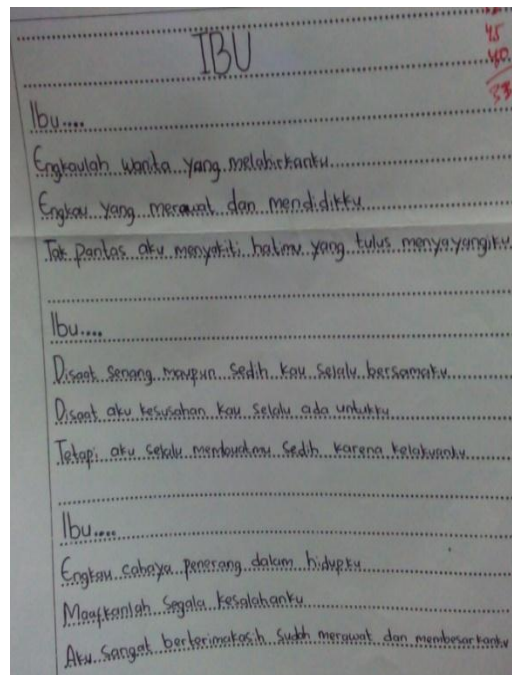 IBU
45
40
Ibu....
Engkaulah wanita yang melahirkanku
Engkau yang merawat dan mendidikku
Tak pantas aku menyakiti hatimu yang tulus menyayangiku
Ibu....
Disaat senang maupun sedih kau selalu bersamaku
Disaat aku kesusahan kau selalu ada untukku
Tetapi aku selalu membuatmu sedih karena kelakuanku
Ibu....
Engkau cahaya penerang dalam hidupku
Maafkanlah segala kesalahanku
Aku sangat berterimakasih sudah merawat dan membesarkanku